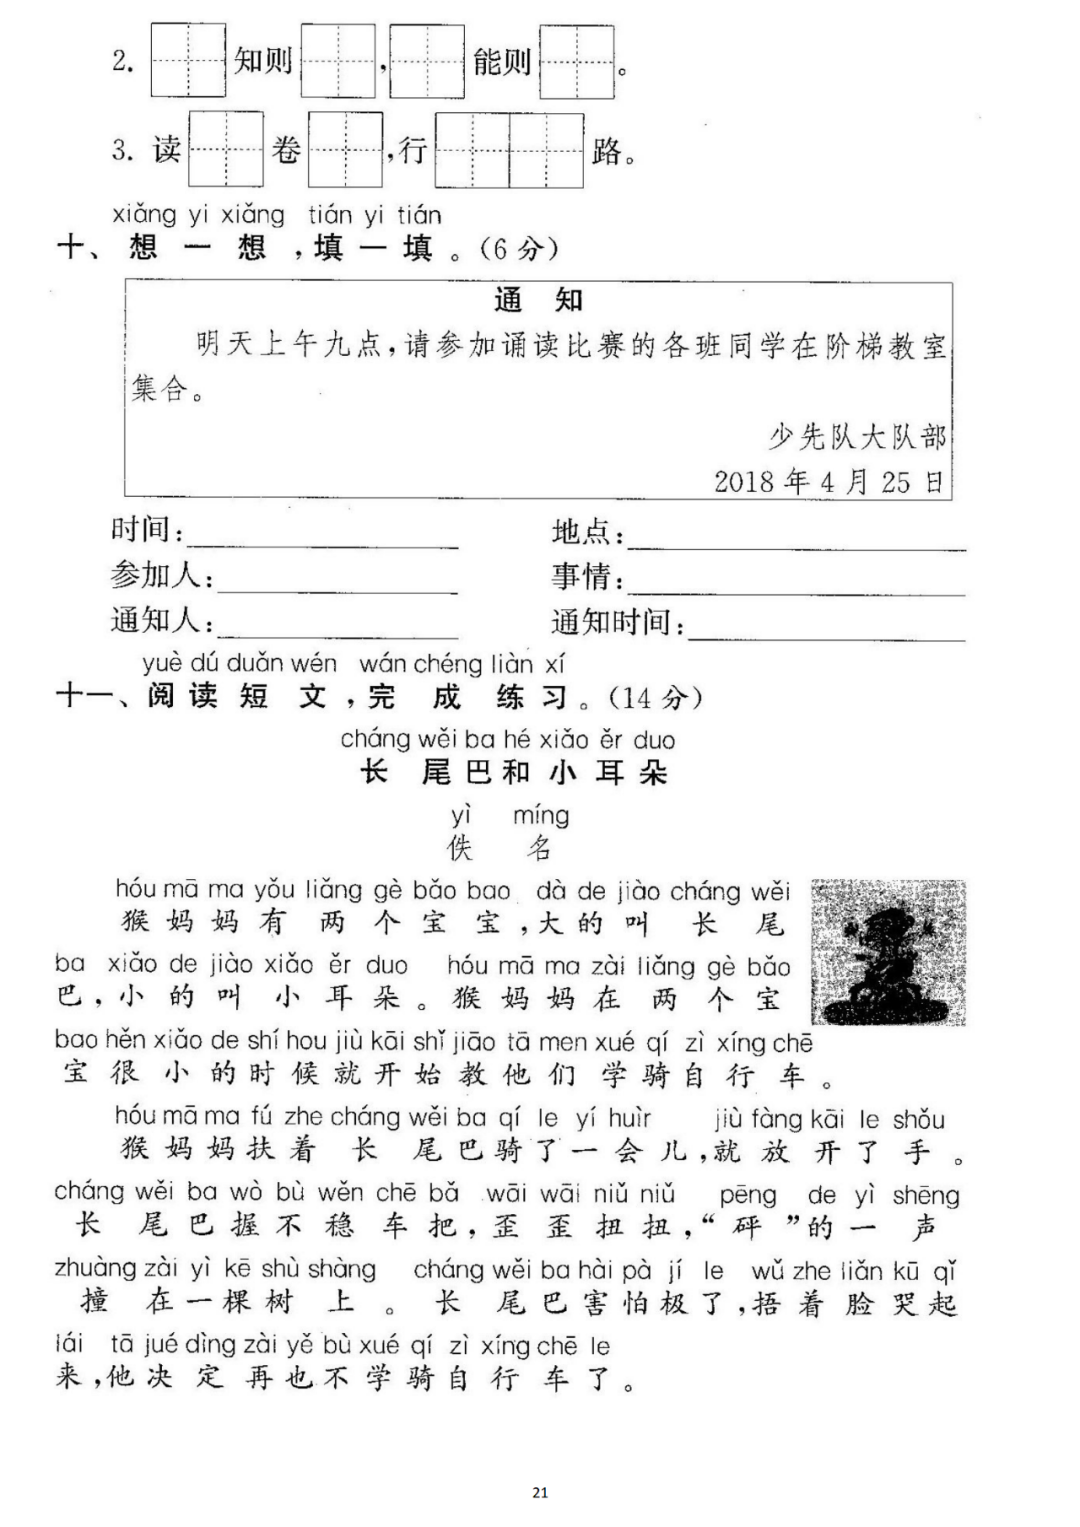 2. 知则 , 能则 。
3. 读 卷 ,行 路。
xiǎng yi xiǎng tián yi tián
十、想一想,填一填。(6分)
通 知
明天上午九点,请参加诵读比赛的各班同学在阶梯教室
集合。
少先队大队部
2018年4月25日
时间: 地点:
参加人: 事情:
通知人: 通知时间:
yuè dú duǎn wén wán chéng liàn xí
十一、阅读短文,完成练习。(14分)
cháng wěi ba hé xiǎo ěr duo
长尾巴和小耳朵
yì míng
佚名
hóu mā ma yǒu liǎng gè bǎo bao dà de jiào cháng wěi
猴妈妈有两个宝宝,大的叫长尾
ba xiǎo de jiào xiǎo ěr duo hóu mā ma zài liǎng gè bǎo
巴,小的叫小耳朵。猴妈妈在两个宝
bao hěn xiǎo de shí hou jiù kāi shǐ jiāo tā men xué qí zì xíng chē
宝很小的时候就开始教他们学骑自行车。
hóu mā ma fú zhe cháng wěi ba qí le yí huìr jiù fàng kāi le shǒu
猴妈妈扶着长尾巴骑了一会儿,就放开了手。
cháng wěi ba wò bù wěn chē bǎ wāi wāi niǔ niǔ pēng de yì shēng
长尾巴握不稳车把,歪歪扭扭,“砰”的一声
zhuàng zài yì kē shù shàng cháng wěi ba hài pà jí le wǔ zhe liǎn kū qǐ
撞在一棵树上。长尾巴害怕极了,捂着脸哭起
lái tā jué dìng zài yě bù xué qí zì xíng chē le
来,他决定再也不学骑自行车了。
21